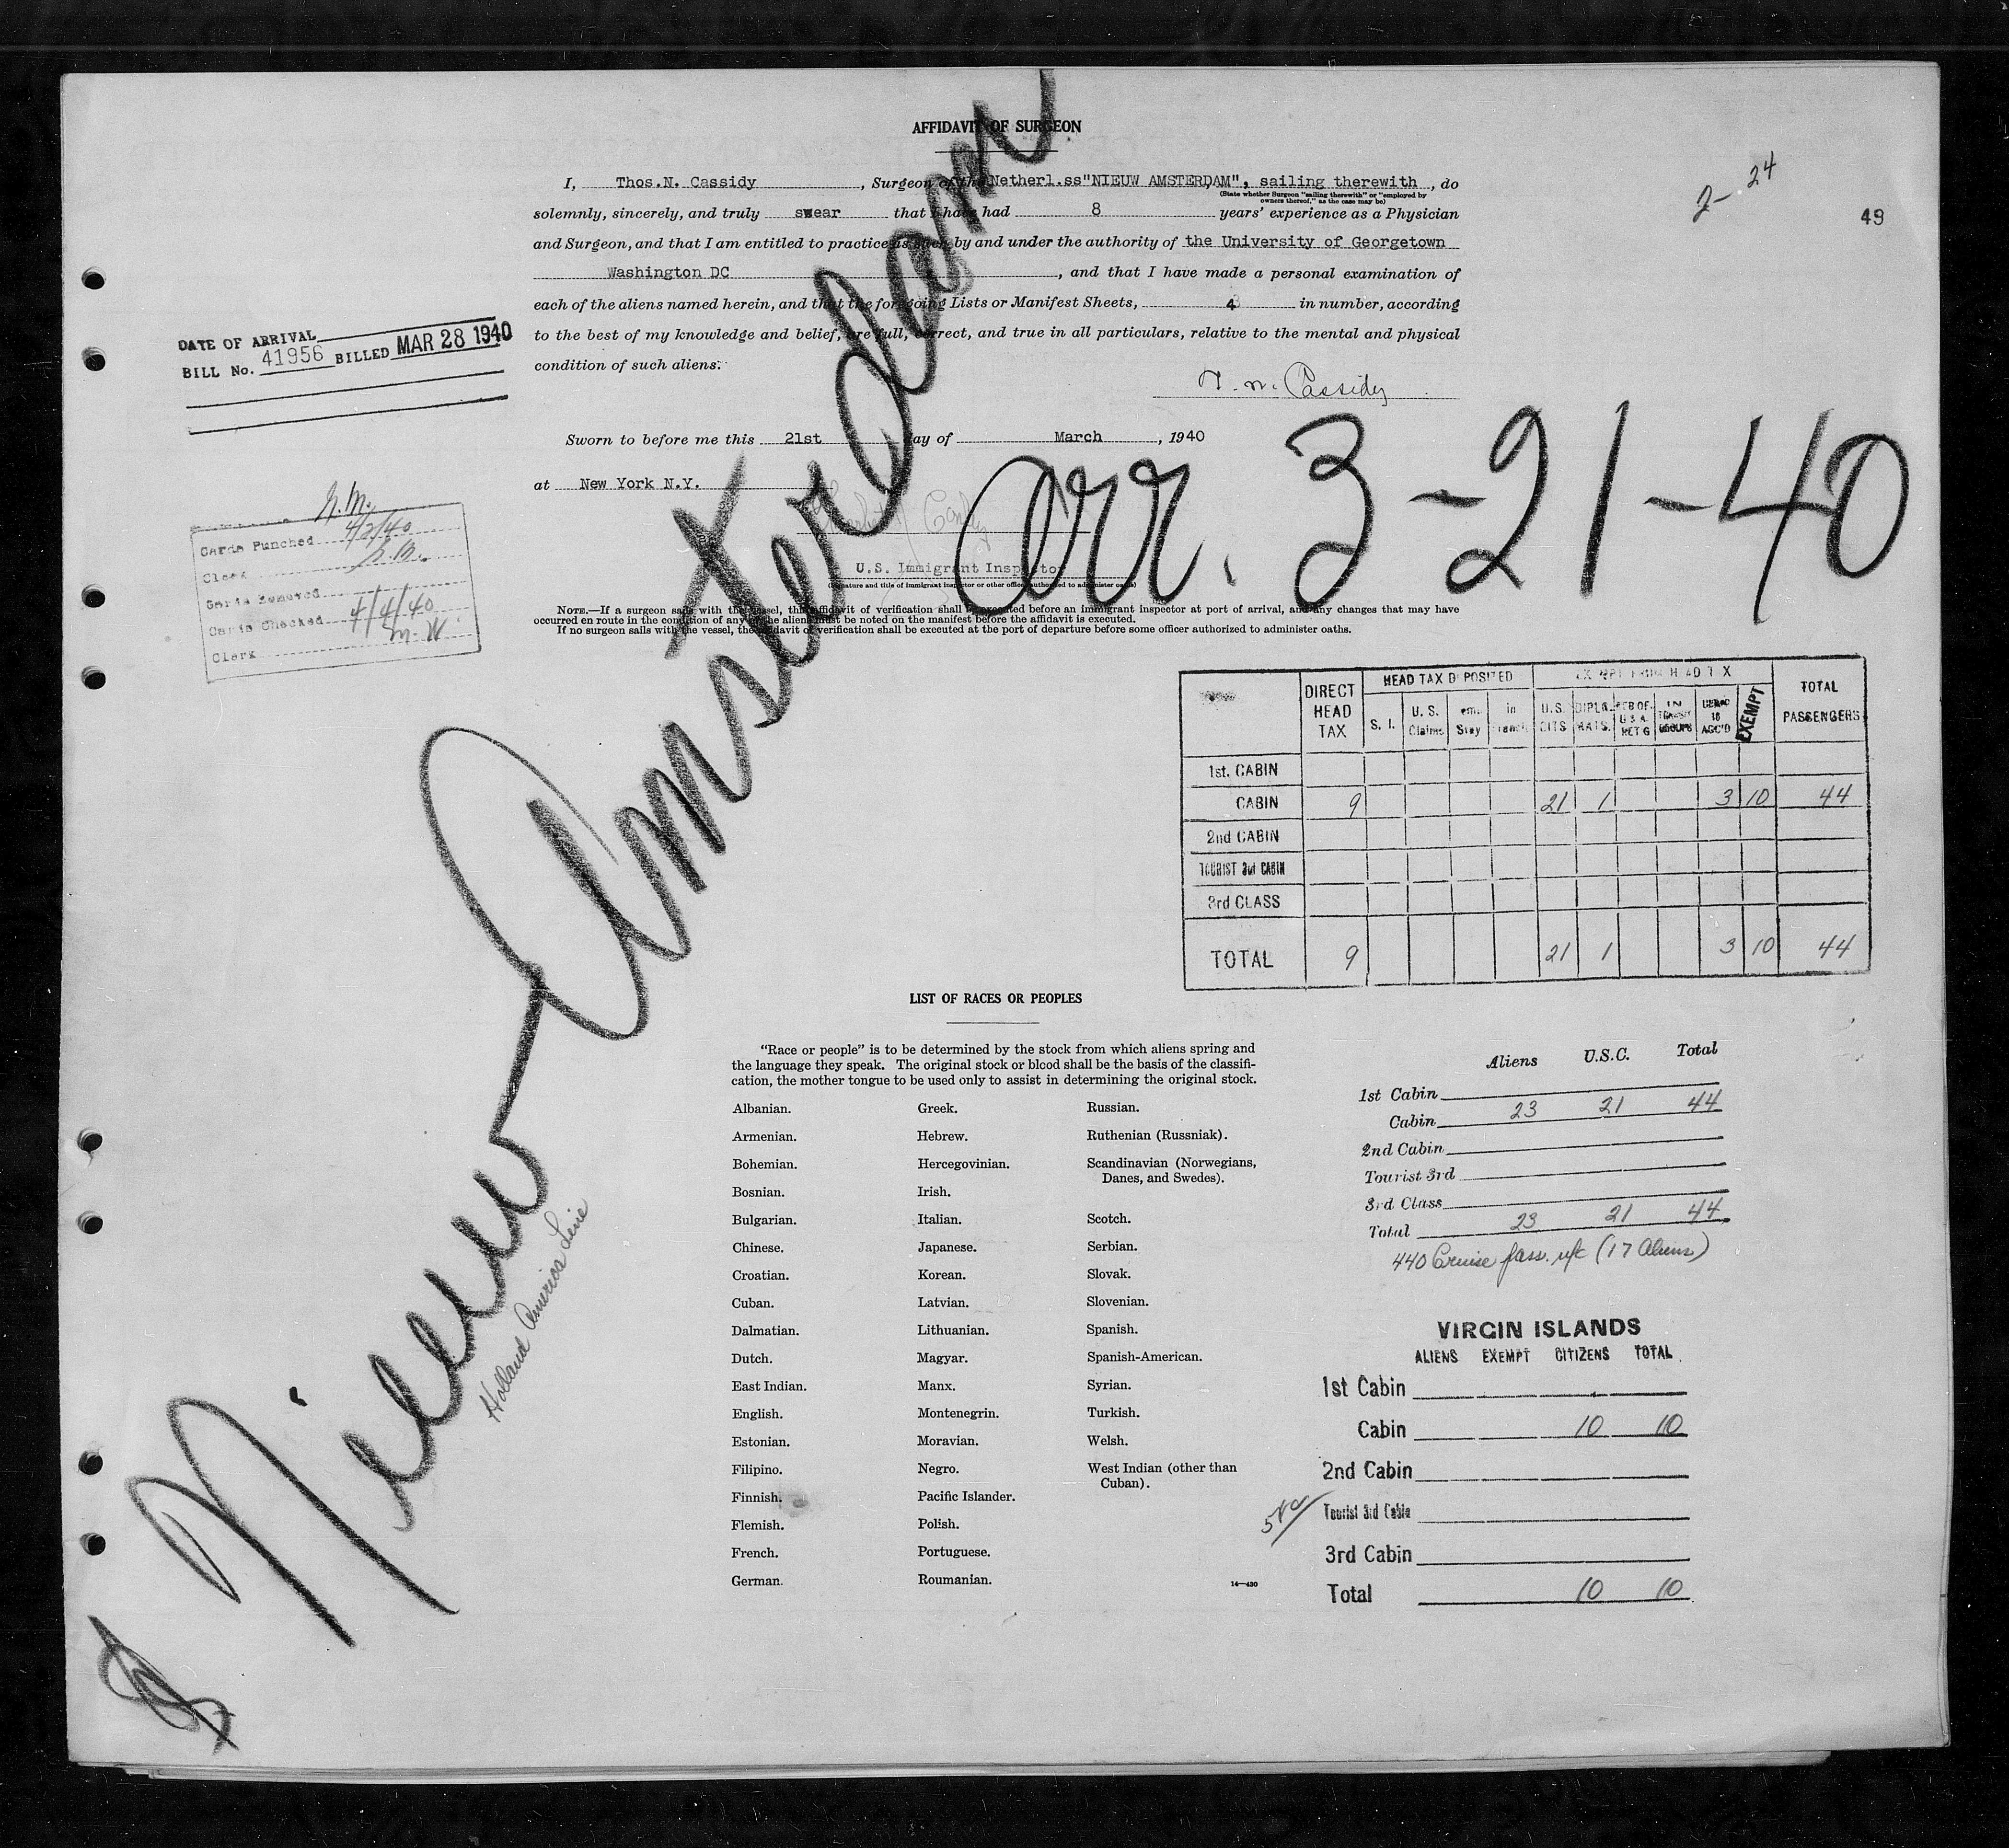 AFFIDAVIT OF SURGEON
2-24
49
I, Thos.N. Cassidy, Surgeon of the Netherl.ss"NIEUW AMSTERDAM", sailing therewith, do
(State whether Surgeon "sailing therewith" or "employed by
owners thereof," as the case may be)
solemnly, sincerely, and truly swear that I have had 8 years' experience as a Physician
and Surgeon, and that I am entitled to practice as such by and under the authority of the University of Georgetown
Washington DC, and that I have made a personal examination of
each of the aliens named herein, and that the foregoing Lists or Manifest Sheets, 4 in number, according
to the best of my knowledge and belief, are full, correct, and true in all particulars, relative to the mental and physical
condition of such aliens.
T. N. Cassidy
DATE OF ARRIVAL
BILL No. 41956 BILLED MAR 28 1940
Sworn to before me this 21st day of March, 1940
at New York N.Y.
U.S. Immigrant Inspector
(Signature and title of immigrant inspector or other officer authorized to administer oaths)
arr. 3-21-40
Cards Punched 4/2/40
Clerk
Cards Removed
Cards Checked 4/4/40
Clerk M.W.
NOTE.—If a surgeon sails with the vessel, this affidavit of verification shall be executed before an immigrant inspector at port of arrival, and any changes that may have
occurred en route in the condition of any of the aliens must be noted on the manifest before the affidavit is executed.
If no surgeon sails with the vessel, the affidavit of verification shall be executed at the port of departure before some officer authorized to administer oaths.
Nieuw Amsterdam
Holland America Line
DIRECT HEAD TAX HEAD TAX DEPOSITED EXEMPT FROM HEAD TAX TOTAL PASSENGERS
S. I. U. S. Claims Stay in U.S. CITS DIPLO-MATS. IN TRANSIT GROUPS UNDER 16 ACC'D EXEMPT
1st. CABIN
CABIN 9 21 1 3 10 44
2nd CABIN
TOURIST 3rd CABIN
3rd CLASS
TOTAL 9 21 1 3 10 44
LIST OF RACES OR PEOPLES
"Race or people" is to be determined by the stock from which aliens spring and
the language they speak. The original stock or blood shall be the basis of the classifi-
cation, the mother tongue to be used only to assist in determining the original stock.
Albanian.
Armenian.
Bohemian.
Bosnian.
Bulgarian.
Chinese.
Croatian.
Cuban.
Dalmatian.
Dutch.
East Indian.
English.
Estonian.
Filipino.
Finnish.
Flemish.
French.
German.
Greek.
Hebrew.
Hercegovinian.
Irish.
Italian.
Japanese.
Korean.
Latvian.
Lithuanian.
Magyar.
Manx.
Montenegrin.
Moravian.
Negro.
Pacific Islander.
Polish.
Portuguese.
Roumanian.
Russian.
Ruthenian (Russniak).
Scandinavian (Norwegians,
Danes, and Swedes).
Scotch.
Serbian.
Slovak.
Slovenian.
Spanish.
Spanish-American.
Syrian.
Turkish.
Welsh.
West Indian (other than
Cuban).
14—430
Aliens U.S.C. Total
1st Cabin
Cabin 23 21 44
2nd Cabin
Tourist 3rd
3rd Class
Total 23 21 44
440 Cruise pass. (17 Aliens)
VIRGIN ISLANDS
ALIENS EXEMPT CITIZENS TOTAL
1st Cabin
Cabin 10 10
2nd Cabin
Tourist 3rd Cabin
3rd Cabin
Total 10 10